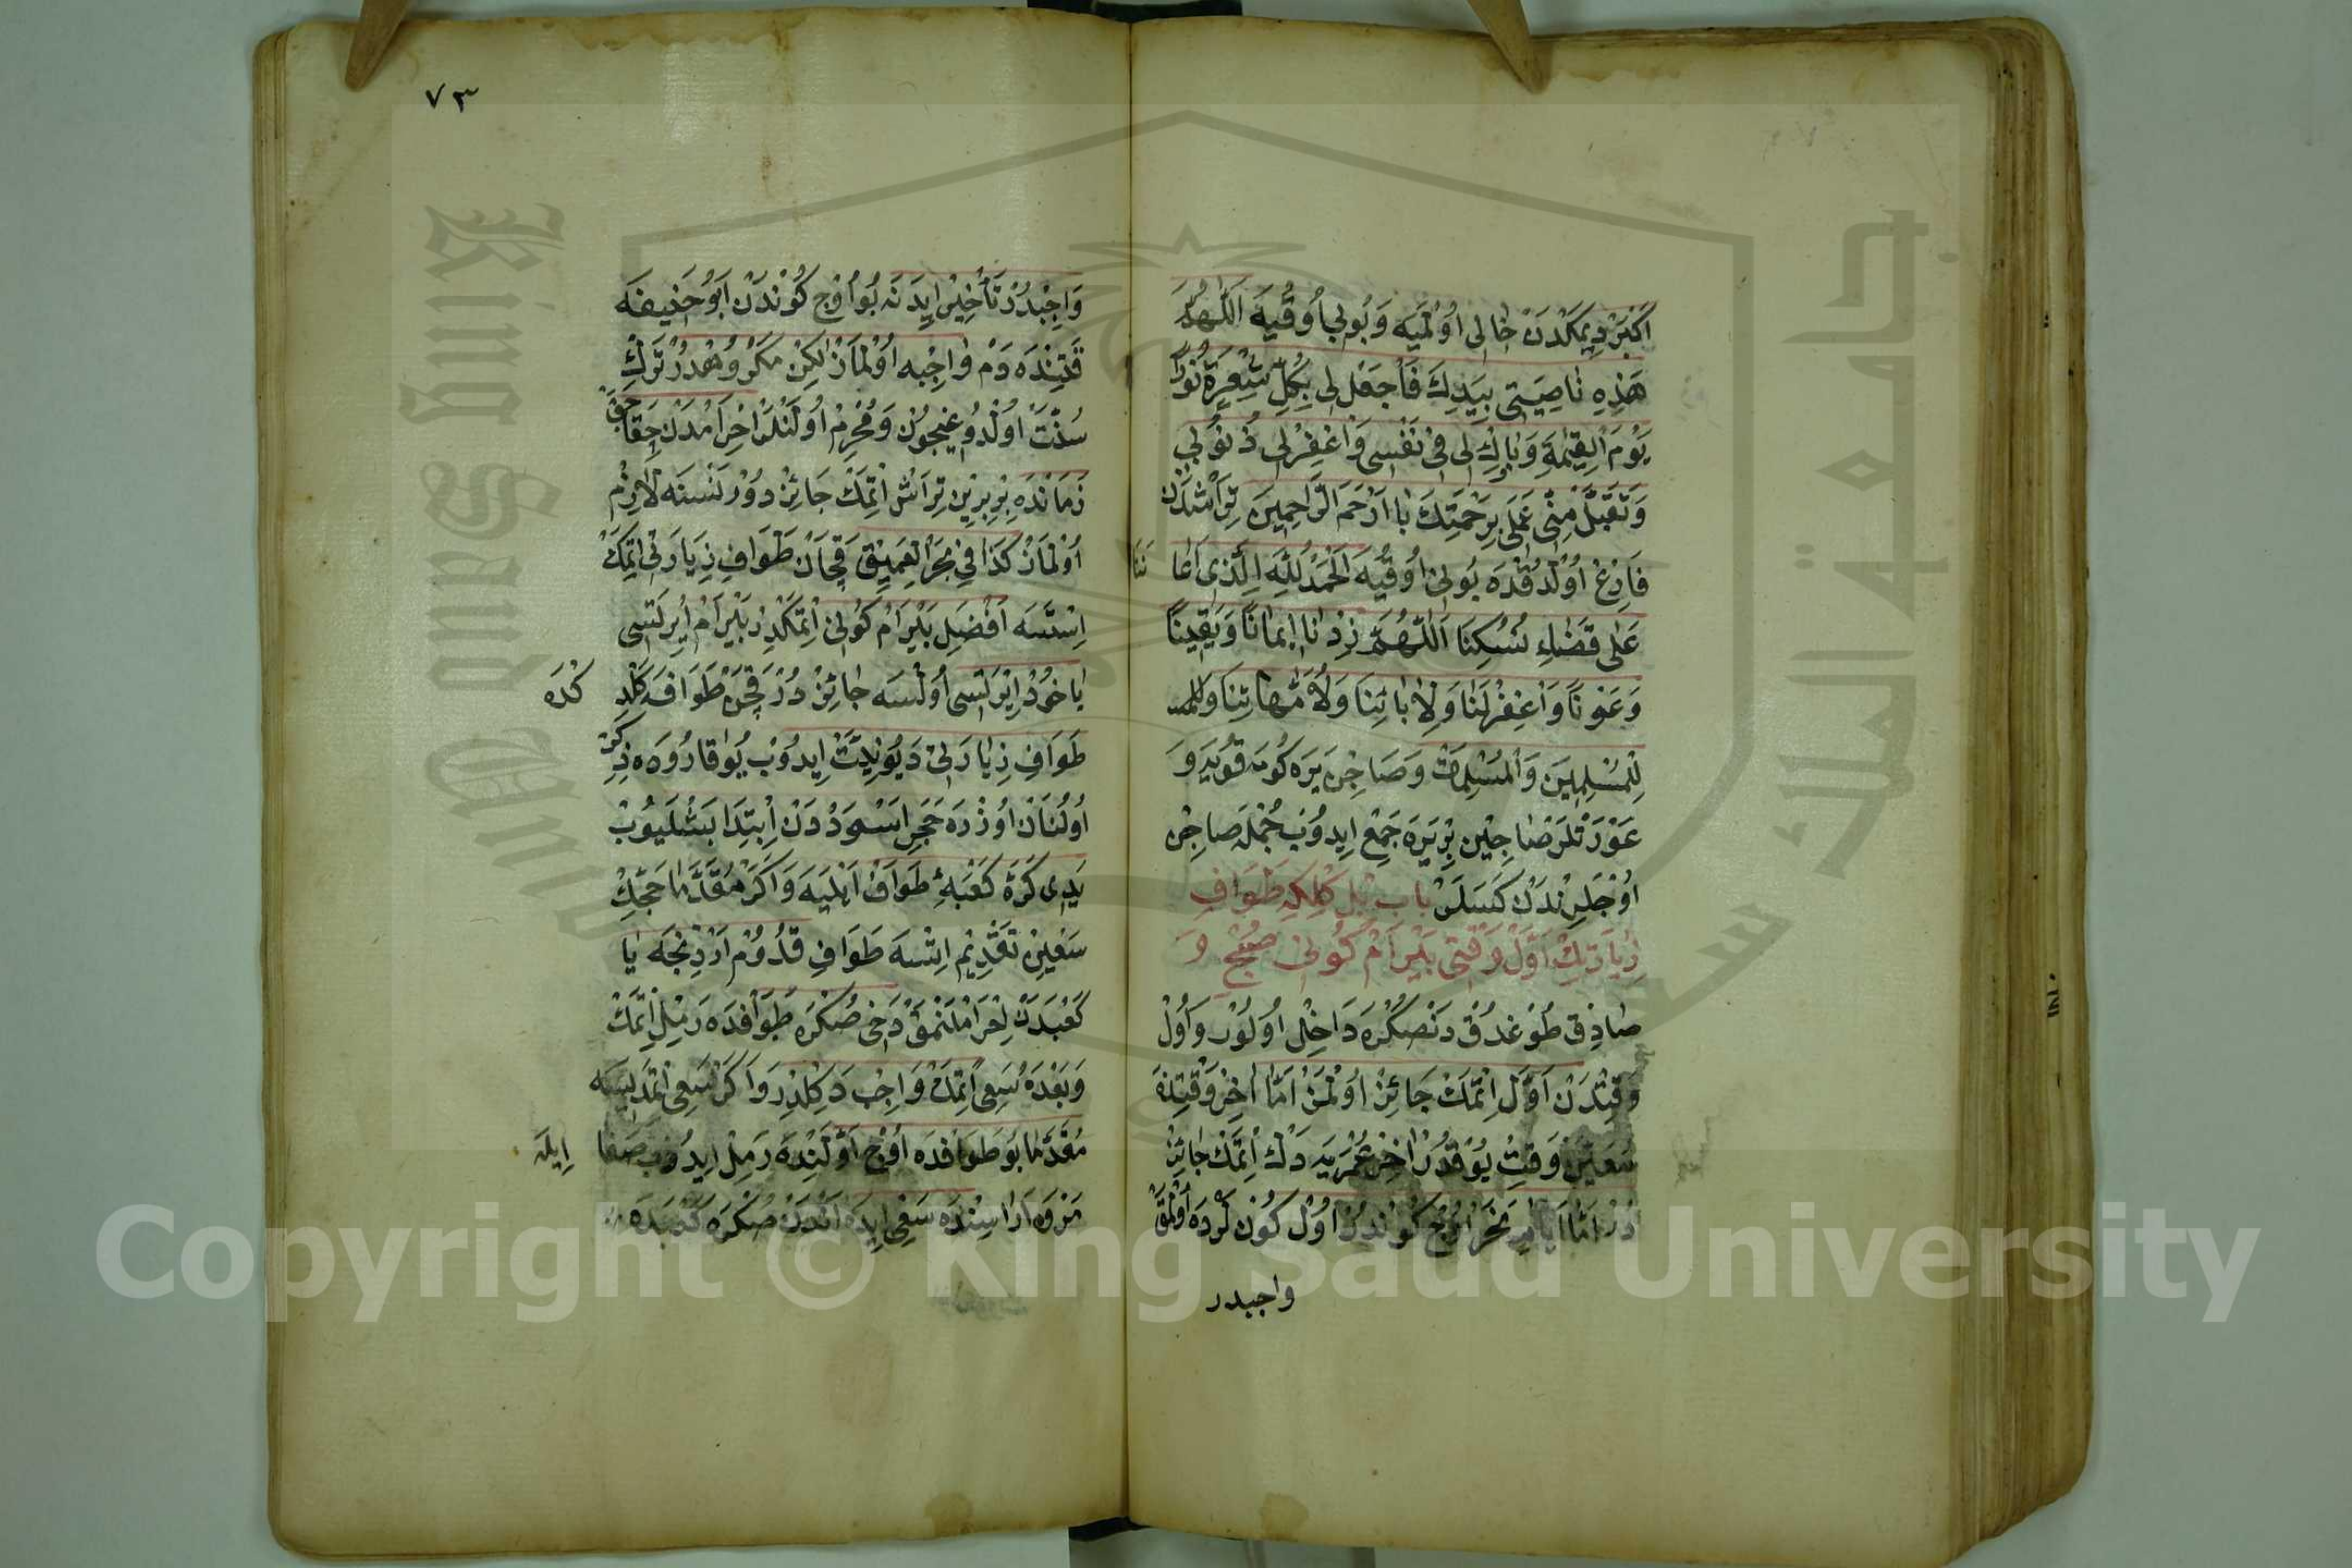 اَكْبَرْ دِيمَكْدَنْ خَالِى اُولْمَيَه وَبُو لِى اُوقُيَه اَللّٰهُمَّ
هَذِهِ نَاصِيَتِى بِيَدِكَ فَاجْعَلْ لِى بِكُلِّ شَعِيرَةٍ نُورًا
يَوْمَ الْقِيٰمَةِ وَبَارِكْ لِى فِى نَفْسِى وَاغْفِرْ لِى ذُنُوبِى
وَتَقَبَّلْ مِنِّى عَمَلِى بِرَحْمَتِكَ يَا اَرْحَمَ الرَّاحِمِينَ تِرَاشْدَنْ
فَارِغْ اُولْدُقْدَه بُونِى اُوقُيَه اَلْحَمْدُ لِلّٰهِ الَّذِى اَعَا نَنَا
عَلَى قَضَاءِ نُسُكِنَا اَللّٰهُمَّ زِدْنَا اِيمَانًا وَيَقِينًا
وَعَوْنًا وَاغْفِرْلَنَا وَلِاٰبَائِنَا وَلِاُمَّهَاتِنَا
لِلْمُسْلِمِينَ وَالْمُسْلِمَاتْ وَصَاچِنْ يَرَه كُومَه قُويَه وَ
عَوْرَتْلَرْ صَاچِينْ بِرْ يَرَه جَمِعْ اِيدُوبْ جُمْلَه صَاچِنْ
اُوجْلَرِنْدَنْ كَسَلَرْ بَاب بِلْ كِلْكِه طَوَافِ
زِيَارَتِكْ اَوَّلْ وَقْتِى بَيْرَامْ كُونِى صُبْحِ وَ
صَادِقْ طُوغْدُقْدَنْصِكْرَه دَاخِلْ اُولُوْر وَاُولْ
وَقْتْدَنْ اَوَّلْ اِتْمَكْ جَائِزْ اُولْمَزْ اَمَّا اٰخِرْ وَقْتِنَه
مُعَيَّنْ وَقِتْ يُوقْدُرْ اٰخِرْ عُمْرِيَه دَكْ اِتْمَكْ جَائِزْ
دُرْ اَمَّا اَيَّامِ نَحَرْ اُوچْ كُونْدُرْ اُولْ كُونْلَرْدَه اُولْمَقْ
واجبدر
٧٣
وَاجِبْدُرْ تَأْخِيرْ اِيدَنَه بُو اُوچْ كُونْدَنْ اَبُو حَنِيفَه
قَتِنْدَه دَمْ وَاجِبْ اُولْمَازْ لٰكِنْ مَكْرُوهْدُرْ تَرْكِ
سُنَّتْ اُولْدُوغِيچُونْ وَمُحْرِمْ اُولَنْلَرْ اِحْرَامْدَنْ چِقَاجَقْ
زَمَانْدَه بِرِ بِرِينْ تِرَاشْ اِتْمَكْ جَائِزْ دُوْر نَسْنَه لَازِمْ
اُولْمَازْ كَذَا فِى بَحْرِ الْعَمِيقْ قَچَانْ طَوَافِ زِيَارَتِى اِتْمَكْ
اِسْتَسَه اَفْضَلِ بَيْرَامْ كُونِى اِتْمَكْدِرْ بَيْرَامْ اِيرْتَسِى
يَاخُودْ اِيرْتَسِى اُولْسَه جَائِزْ دُرْ قَچَنْ طَوَافَه كَلْدِ كْدَه
طَوَافِ زِيَارَتِى دَيُو نِيَّتْ اِيدُوبْ يُوقَارُوده ذِكِرْ
اُولُنَانْ اُوزْرَه حَجَرِ اَسْوَدْدَنْ اِبْتِدَا بَشْلَيُوبْ
يَدِى كَرَّه كَعْبَه‌ِ طَوَافْ اَيْلَيَه وَاَكَرْ مُقَدَّمَا حَجِّكْ
سَعْيِنْ تَقْدِيمْ اِتْسَه طَوَافِ قُدُومْ اَرْدِنْجَه يَا
كَعْبَدَنْ اِحْرَامْلَنْمَقْدَخِى صُكْرَه طَوَافْدَه رَمِلْ اِتْمَكْ
وَبَعْدَه سَعِى اِتْمَكْ وَاجِبْ دَكِلْدِرْ وَاَكَرْ سَعِى اِتْمَدِيسَه
مُقَدَّمَا بُو طَوَافْدَه اُوچْ اَوَّلَنْدَه رَمِلْ اِيدُوبْ صَفَا اِيلَه
مَرْوَه اَرَاسِنْدَه سَعِى اِيدَه اَنْدَنْ صُكْرَه كَعْبَدَه